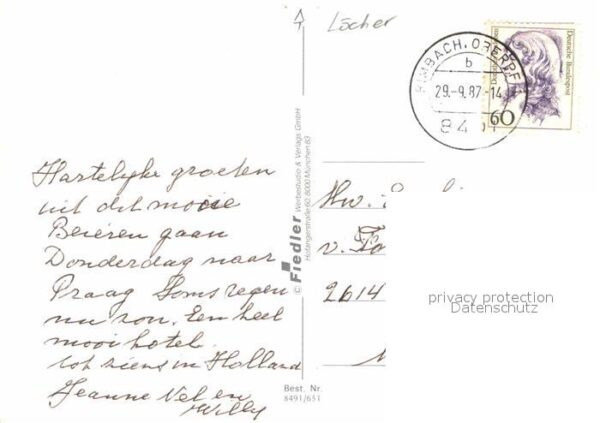 Löcher
RIMBACH, OBERPF
b
29.-9.87.-14
84
Deutsche Bundespost
60
Hartelyke groeten
uit dit mooie
Beieren gaan
Donderdag naar
Praag Soms regen
nu zon. Een heel
mooi hotel.
tot ziens in Holland
Jeanne Vel en
Willy
© Fiedler Werbestudio & Verlags GmbH
8000 München 83
v.
2614
privacy protection
Datenschutz
Best. Nr.
8491/651